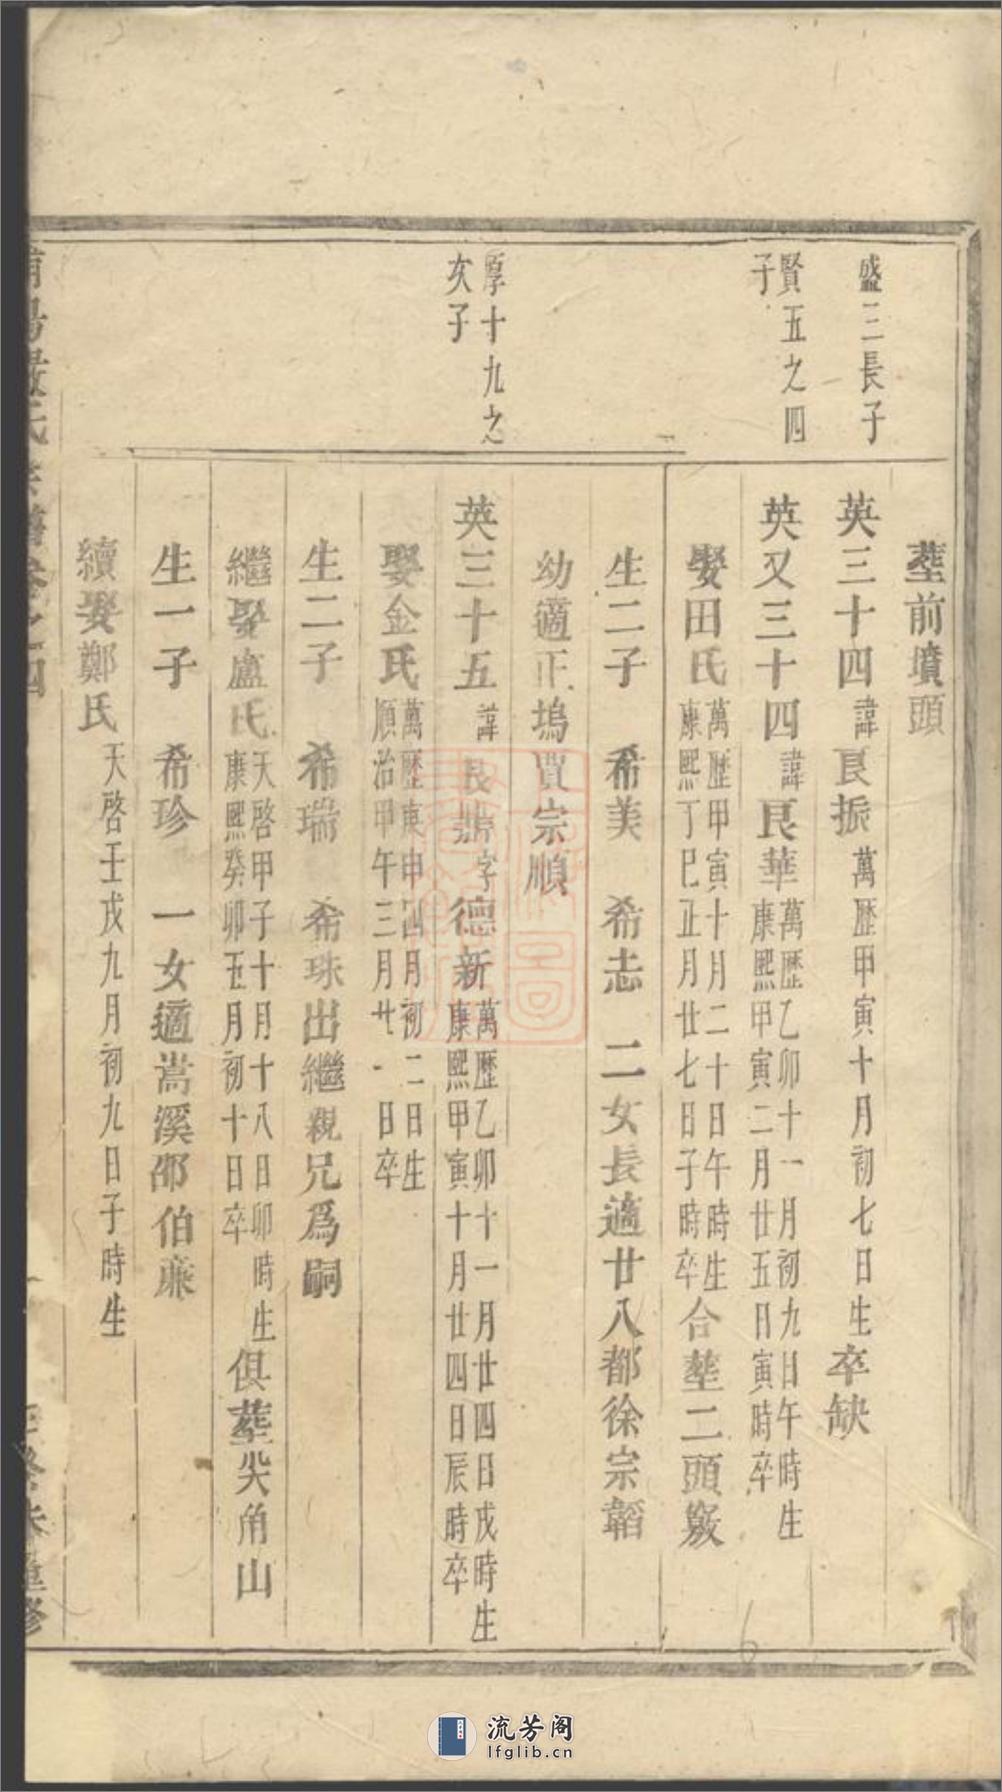 塟前墳頭
盛三長子
英三十四諱良振萬歷甲寅十月初七日生卒缺
賢五之四
子
英又三十四諱良華萬歷乙卯十一月初九日午時生
康熙甲寅二月廿五日寅時卒
娶田氏萬歷甲寅十月二十日午時生
康熙丁巳正月廿七日子時卒合塟二頭竅
生二子 希美 希志 二女長適廿八都徐宗韜
幼適正塢賈宗順
厚十九之
次子
英三十五諱良鼎字德新萬歷乙卯十一月廿四日戌時生
康熙甲寅十月廿四日辰時卒
娶金氏萬歷庚申四月初二日生
順治甲午三月廿一日卒
生二子 希瑞 希珠出繼親兄爲嗣
繼娶盧氏天啓甲子十月十八日卯時生
康熙癸卯五月初十日卒俱塟尖角山
生一子 希珍 一女適嵩溪邵伯亷
續娶鄭氏天啓壬戌九月初九日子時生
氏宗譜卷之四
流芳阁
lfglib.cn